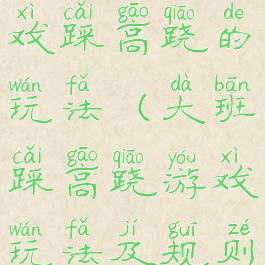 xì cǎi gāo qiāo de
戏踩高跷的
wán fǎ dà bān
玩法（大班
cǎi gāo qiāo yóu xì
踩高跷游戏
wán fǎ jí guī zé
玩法及规则